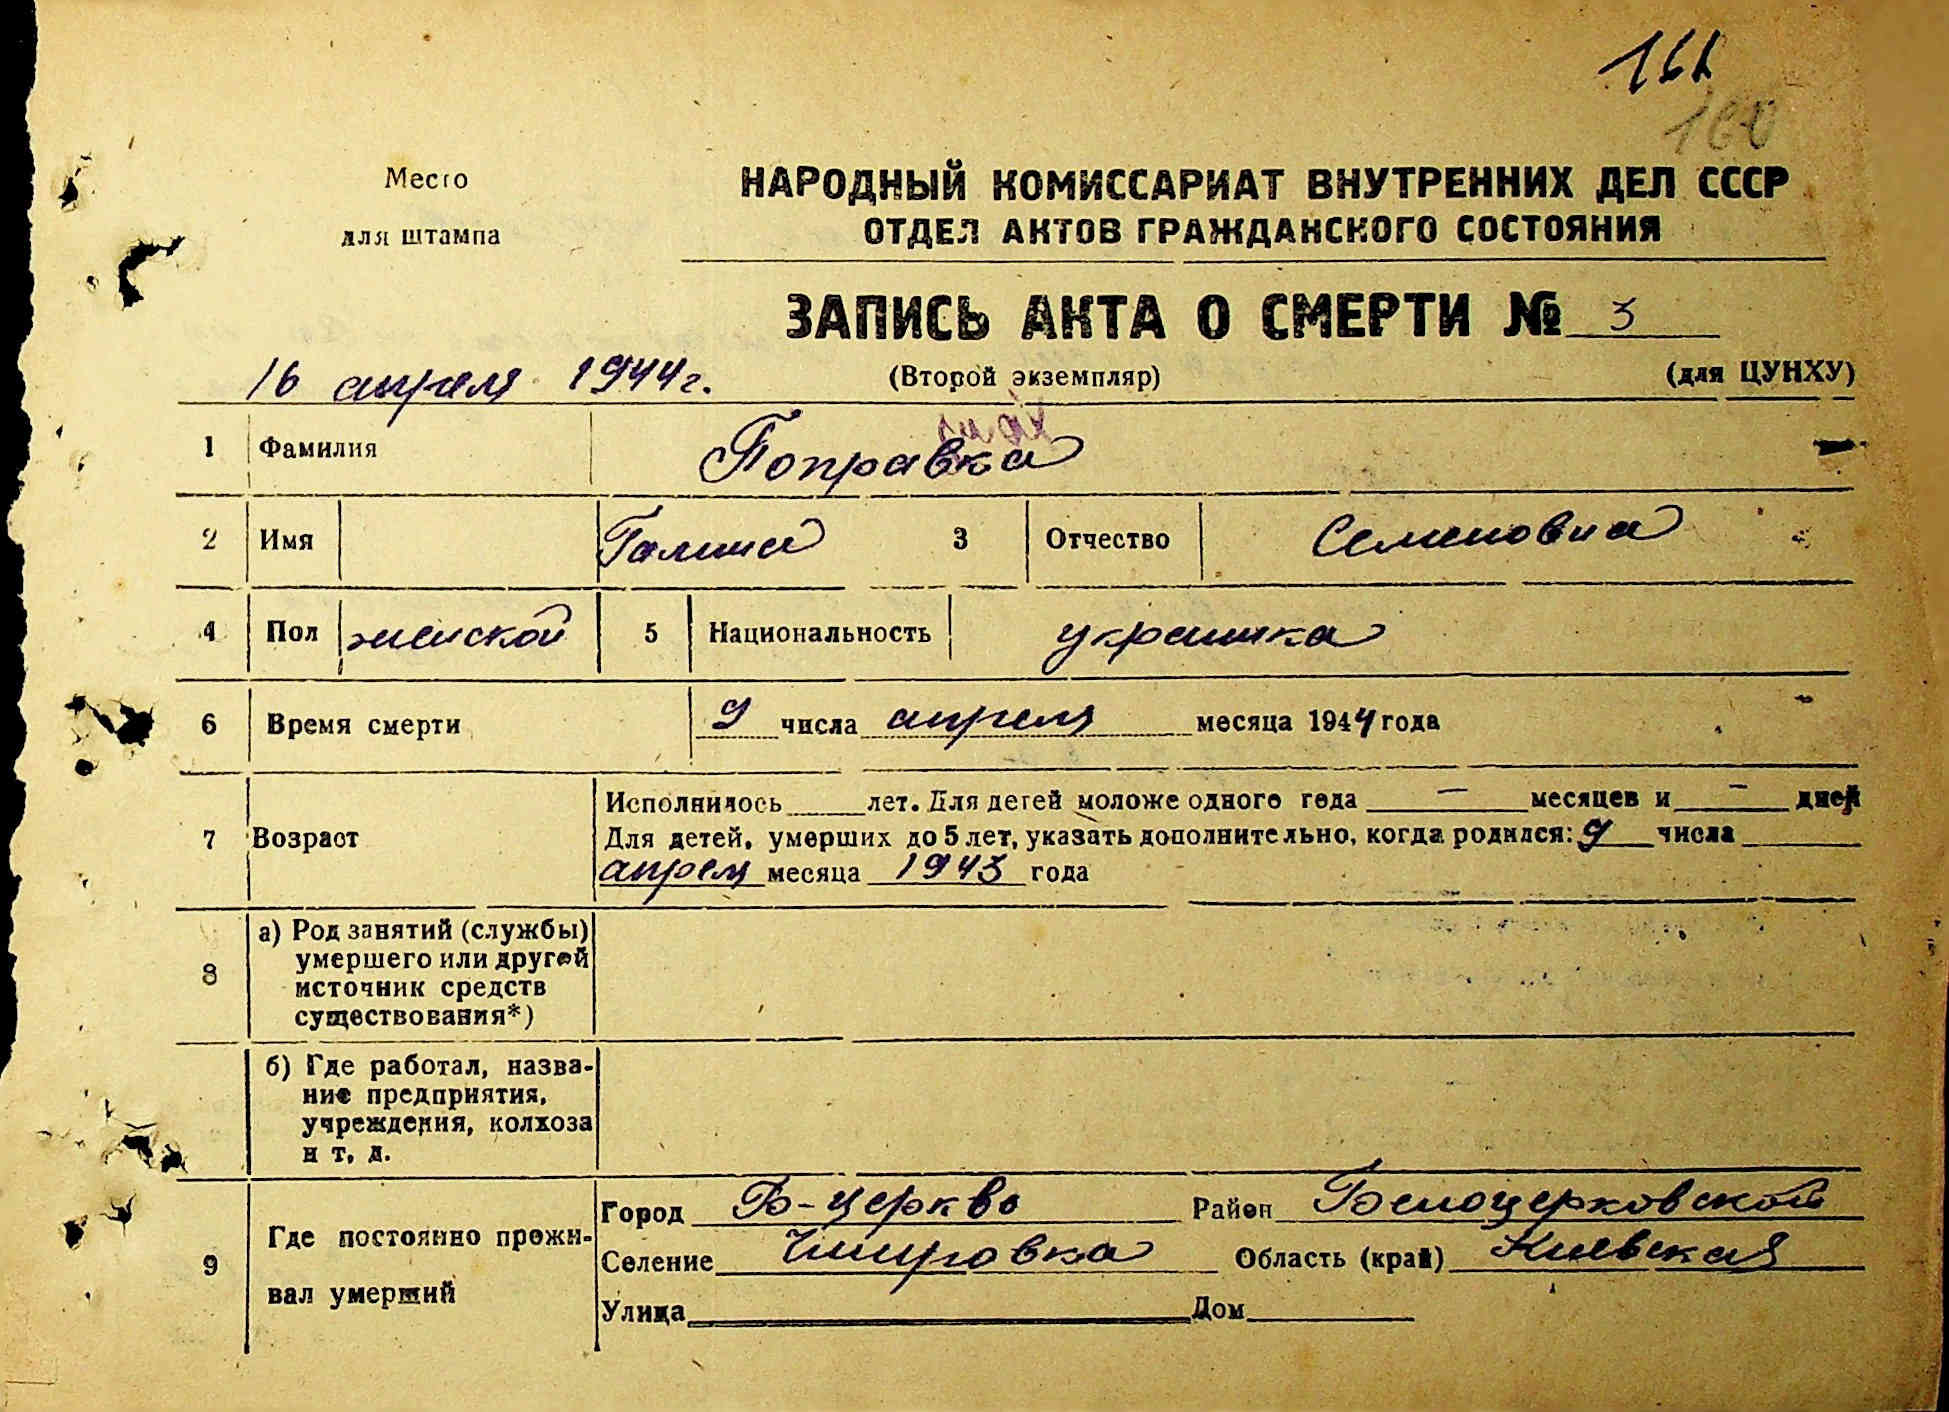 161
160
Место
для штампа
НАРОДНЫЙ КОМИССАРИАТ ВНУТРЕННИХ ДЕЛ СССР
ОТДЕЛ АКТОВ ГРАЖДАНСКОГО СОСТОЯНИЯ
ЗАПИСЬ АКТА О СМЕРТИ № 3
16 апреля 1944 г. (Второй экземпляр) (для ЦУНХУ)
1 Фамилия Поправка
2 Имя Галина 3 Отчество Семеновна
4 Пол женской 5 Национальность украинка
6 Время смерти 9 числа апреля месяца 1944 года
7 Возраст
Исполнилось лет. Для детей моложе одного года — месяцев и — дней
Для детей, умерших до 5 лет, указать дополнительно, когда родился: 9 числа
апреля месяца 1943 года
8 а) Род занятий (службы)
умершего или другой
источник средств
существования*)
б) Где работал, назва-
ние предприятия,
учреждения, колхоза
и т. д.
9 Где постоянно прожи-
вал умерший
Город Б-церковь Район Белоцерковской
Селение Область (край) Киевская
Улица Дом